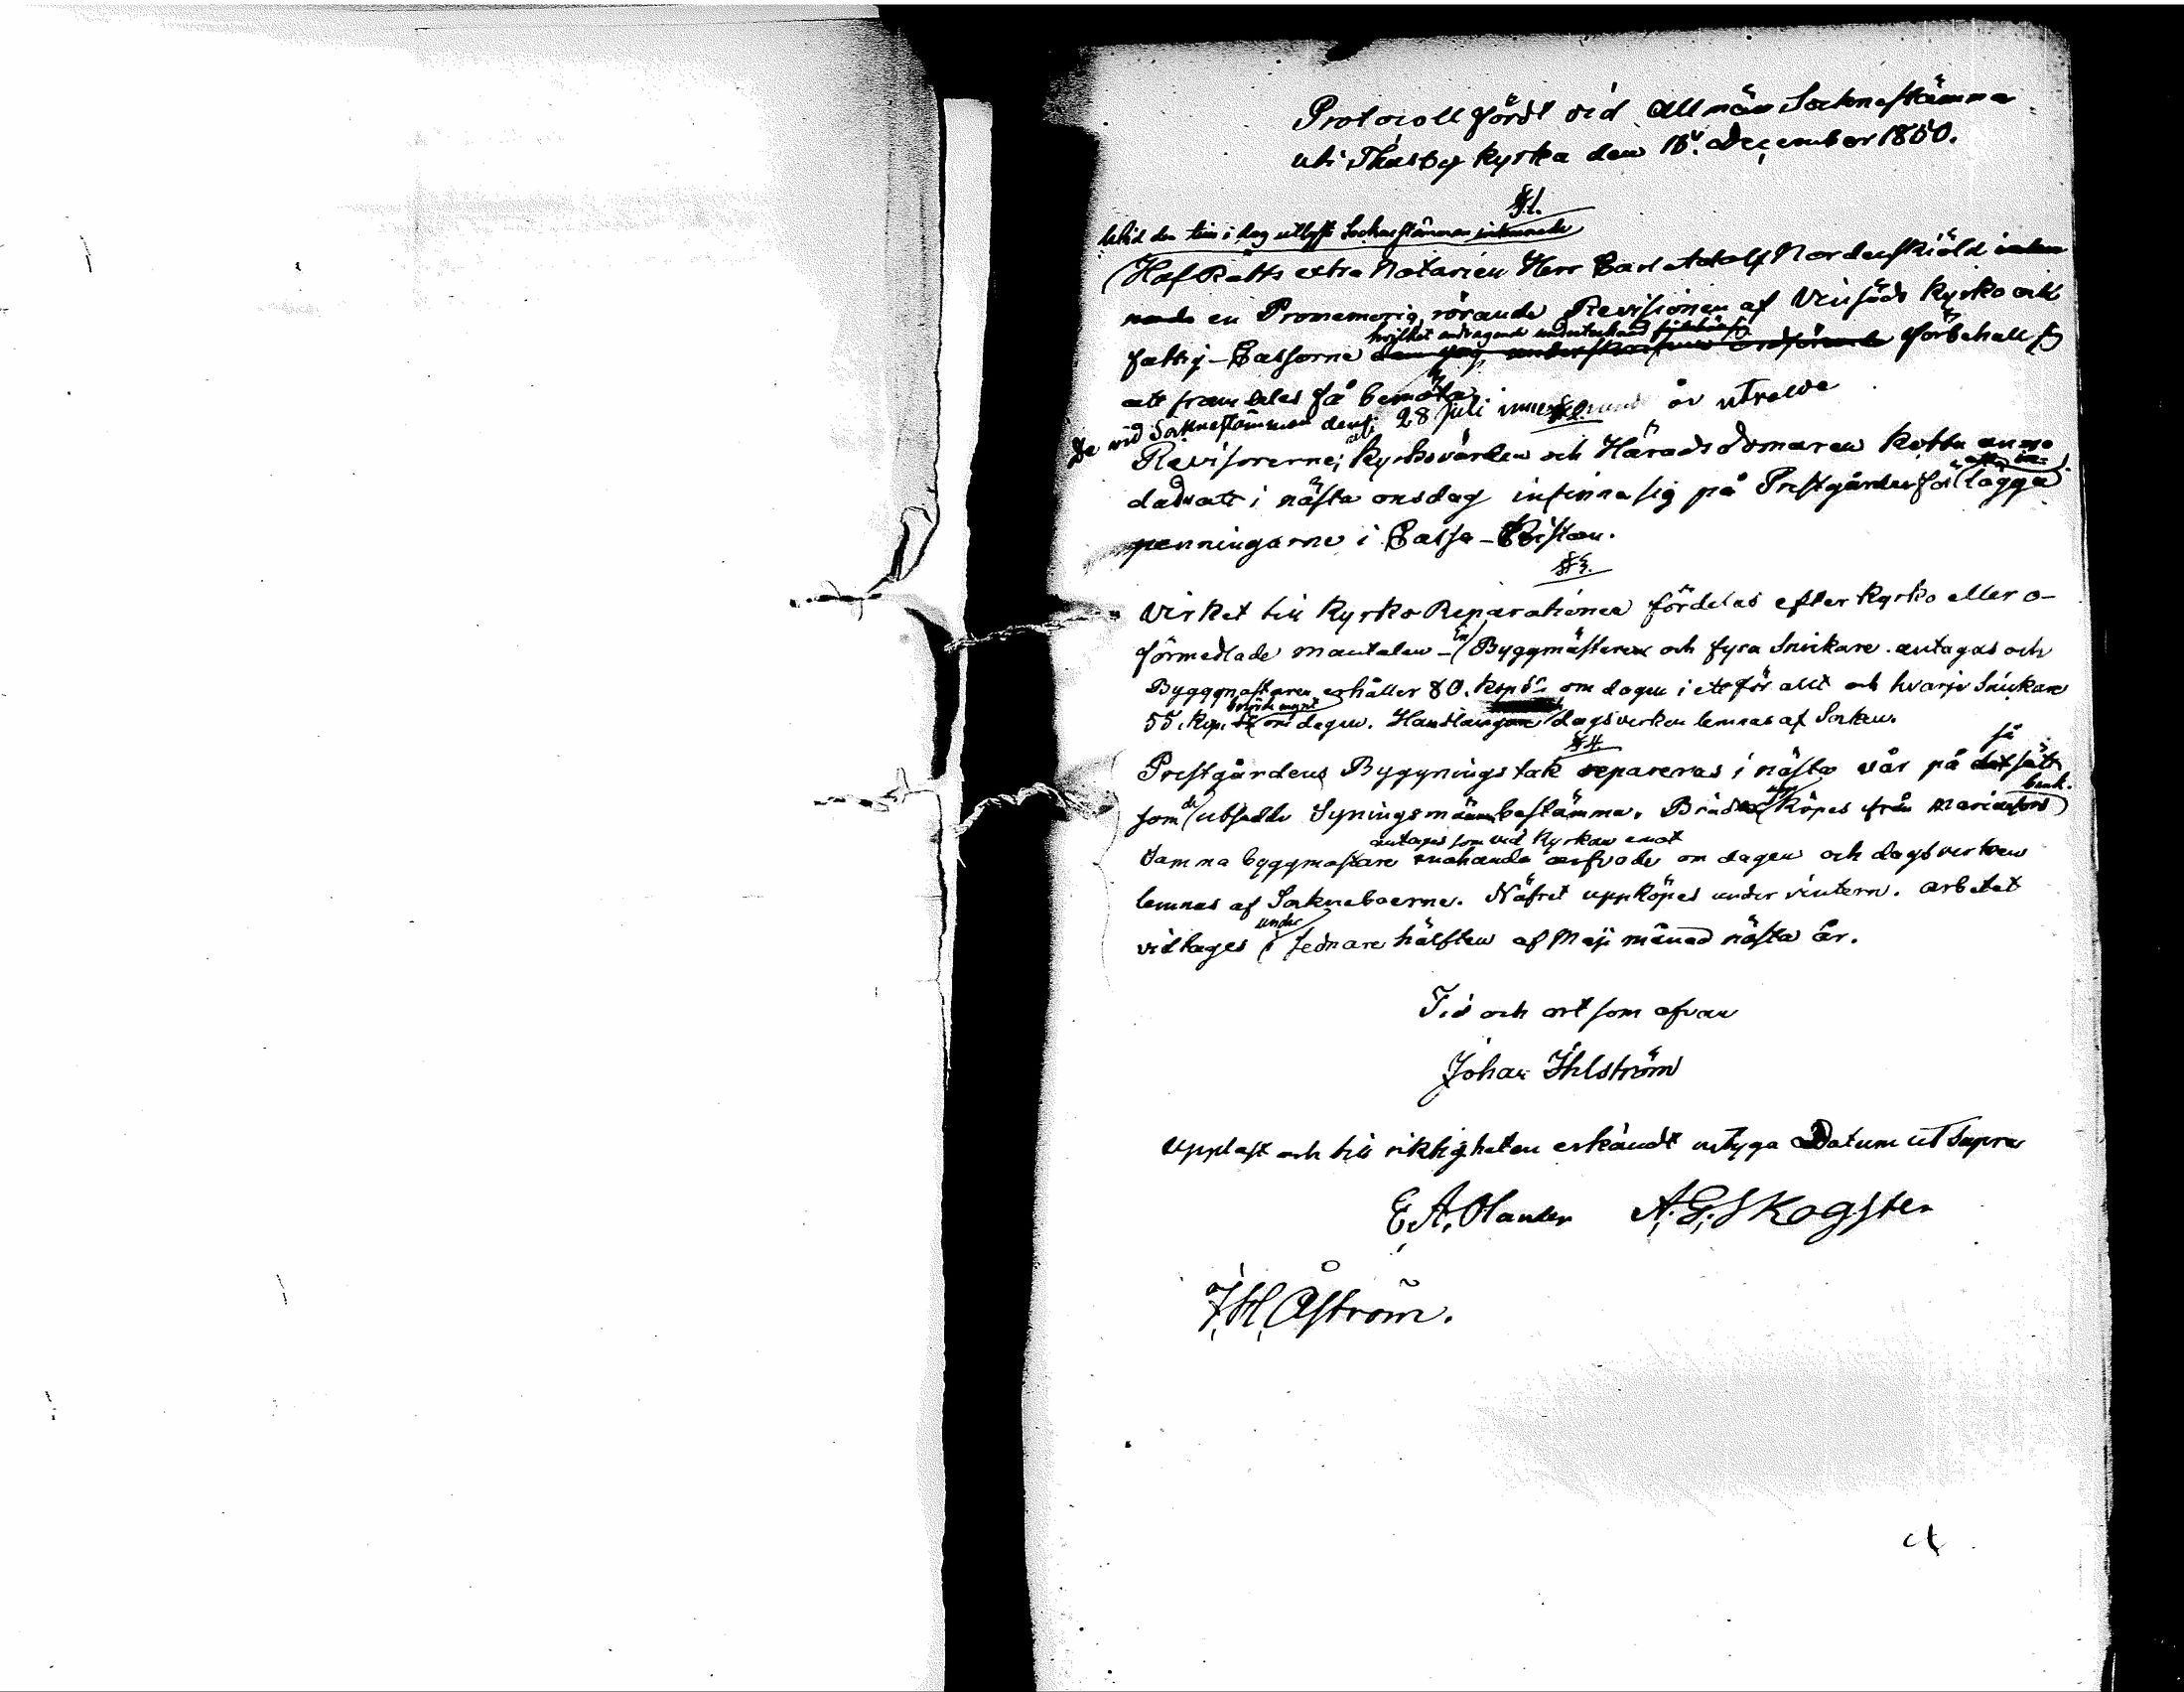 Protocoll fördt vid allmän Socknestämma
uti Thusby kyrka den 15. December 1850.
§ 1.
Wid den till i dag utlyste Sockneftämman inlemnade
Hof Rätts extra Notarien Herr Carl Adolf Nordenskiöld inlem
nande en Promemoria rörande Revisionen af Vinsjöds Kyrko och
hvilket andragande
fattig-Cassorne dem jag underskrefne ordförande förbehåll
att framdeles få bemöta.
§ 2.
De vid Socknestämman den 28 Juli innevarande år utvalde
Revisorerne, Kyrkovärden och Häradsdomaren anmo
dades att i nästa onsdag infinna sig på Prestgården för lägga
penningarne i Cassa-Kistan.
§ 3.
Virket till Kyrko Reparationen fördelas efter Kyrko eller o-
förmedlade mantalen - En Byggmästare och fyra Snickare antagas och
Byggmästaren erhåller 80. Kop. Sr om dagen i ett för allt och hvarje Snickare
55. Kop. om dagen. Handlangare dagsverken lemnas af Socken.
§ 4.
så
Prestgårdens Byggningstak repareras i nästa vår på det sätt
som de utsedde Syningsmän bestämma. Bräder köpes från Mariefors
antages som vid Kyrkan emot
Samma byggmästare enahanda arfvode om dagen och dagsverken
lemnas af Sockneboerne. Näfret uppköpes under vintern. arbetet
under
vidtages i sednare hälften af Maji månad nästa år.
Tid och ort som ofvan
Johan Ihlström
Uppläst och till riktigheten erkändt intyga Datum ut Supra
E. A. Olander A. G. Skogster
J. H. Åström.